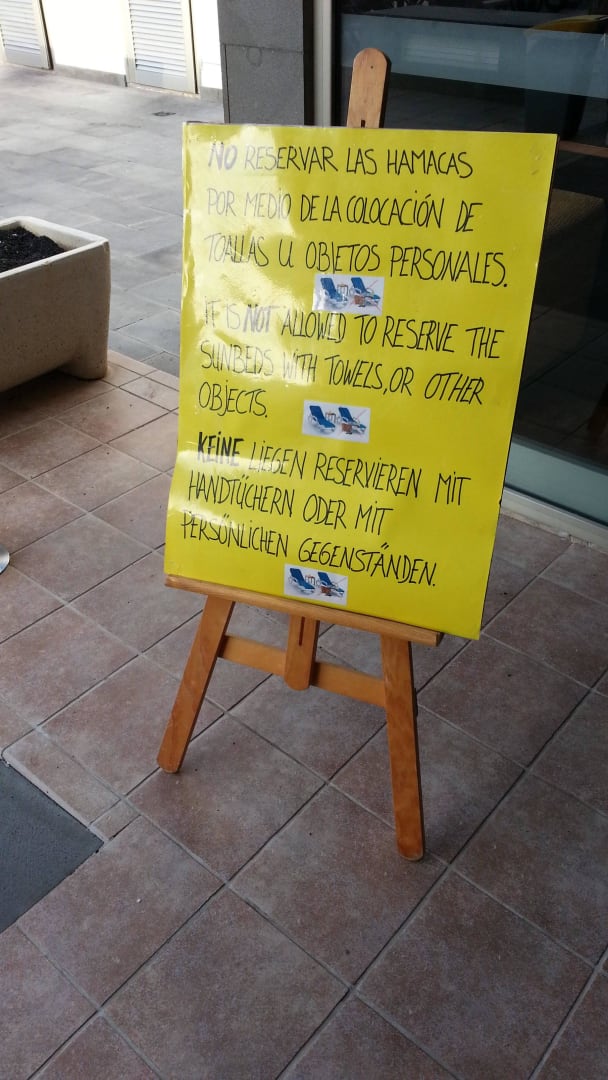 NO RESERVAR LAS HAMACAS
POR MEDIO DE LA COLOCACIÓN DE
TOALLAS U OBJETOS PERSONALES.
IT IS NOT ALLOWED TO RESERVE THE
SUNBEDS WITH TOWELS, OR OTHER
OBJECTS.
KEINE LIEGEN RESERVIEREN MIT
HANDTÜCHERN ODER MIT
PERSÖNLICHEN GEGENSTÄNDEN.